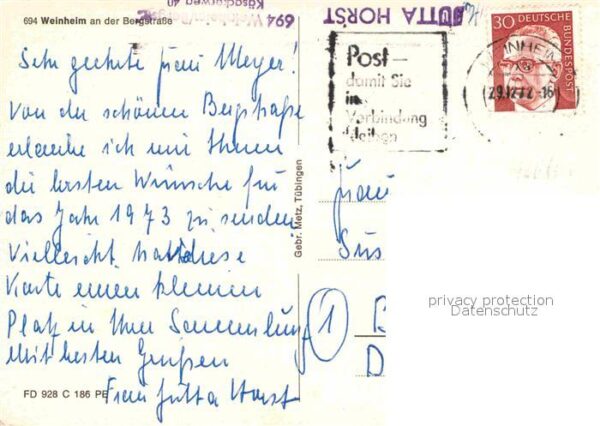 694 Weinheim an der Bergstraße
694 Weinheim/Bergstr.
JUTTA HORST
Sehr geehrte Frau Meyer!
Von der schönen Bergstraße
erlaube ich mir Ihnen
die besten Wünsche für
das Jahr 1973 zu senden
Vielleicht hat diese
Karte einen kleinen
Platz in Ihrer Sammlung
Mit besten Grüßen
Frau Jutta Horst
FD 928 C 186 PE
Gebr. Metz, Tübingen
Post –
damit Sie
in
Verbindung
bleiben
WEINHEIM
29.12.72-16
30 DEUTSCHE
BUNDESPOST
Frau
Sus
1
D
privacy protection
Datenschutz